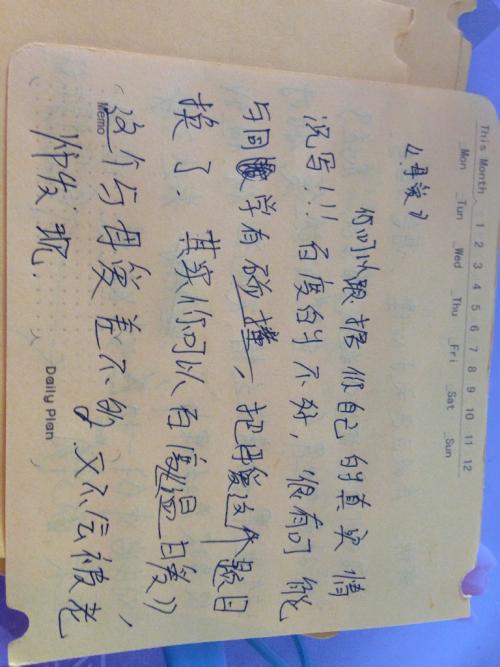 This Month 1 2 3 4 5 6 7 8 9 10 11 12
_Mon _Tun _Wed _Thu _Fri _Sat _Sun
《母爱》
你可以跟据你自己的真实情
况写!!! 百度的不好,很有可能
与同学有碰撞,把母爱这个题目
换了. 其实你可以百度爱》
(这个与母爱差不多,又不会被老
师发现.
Memo
Daily Plan